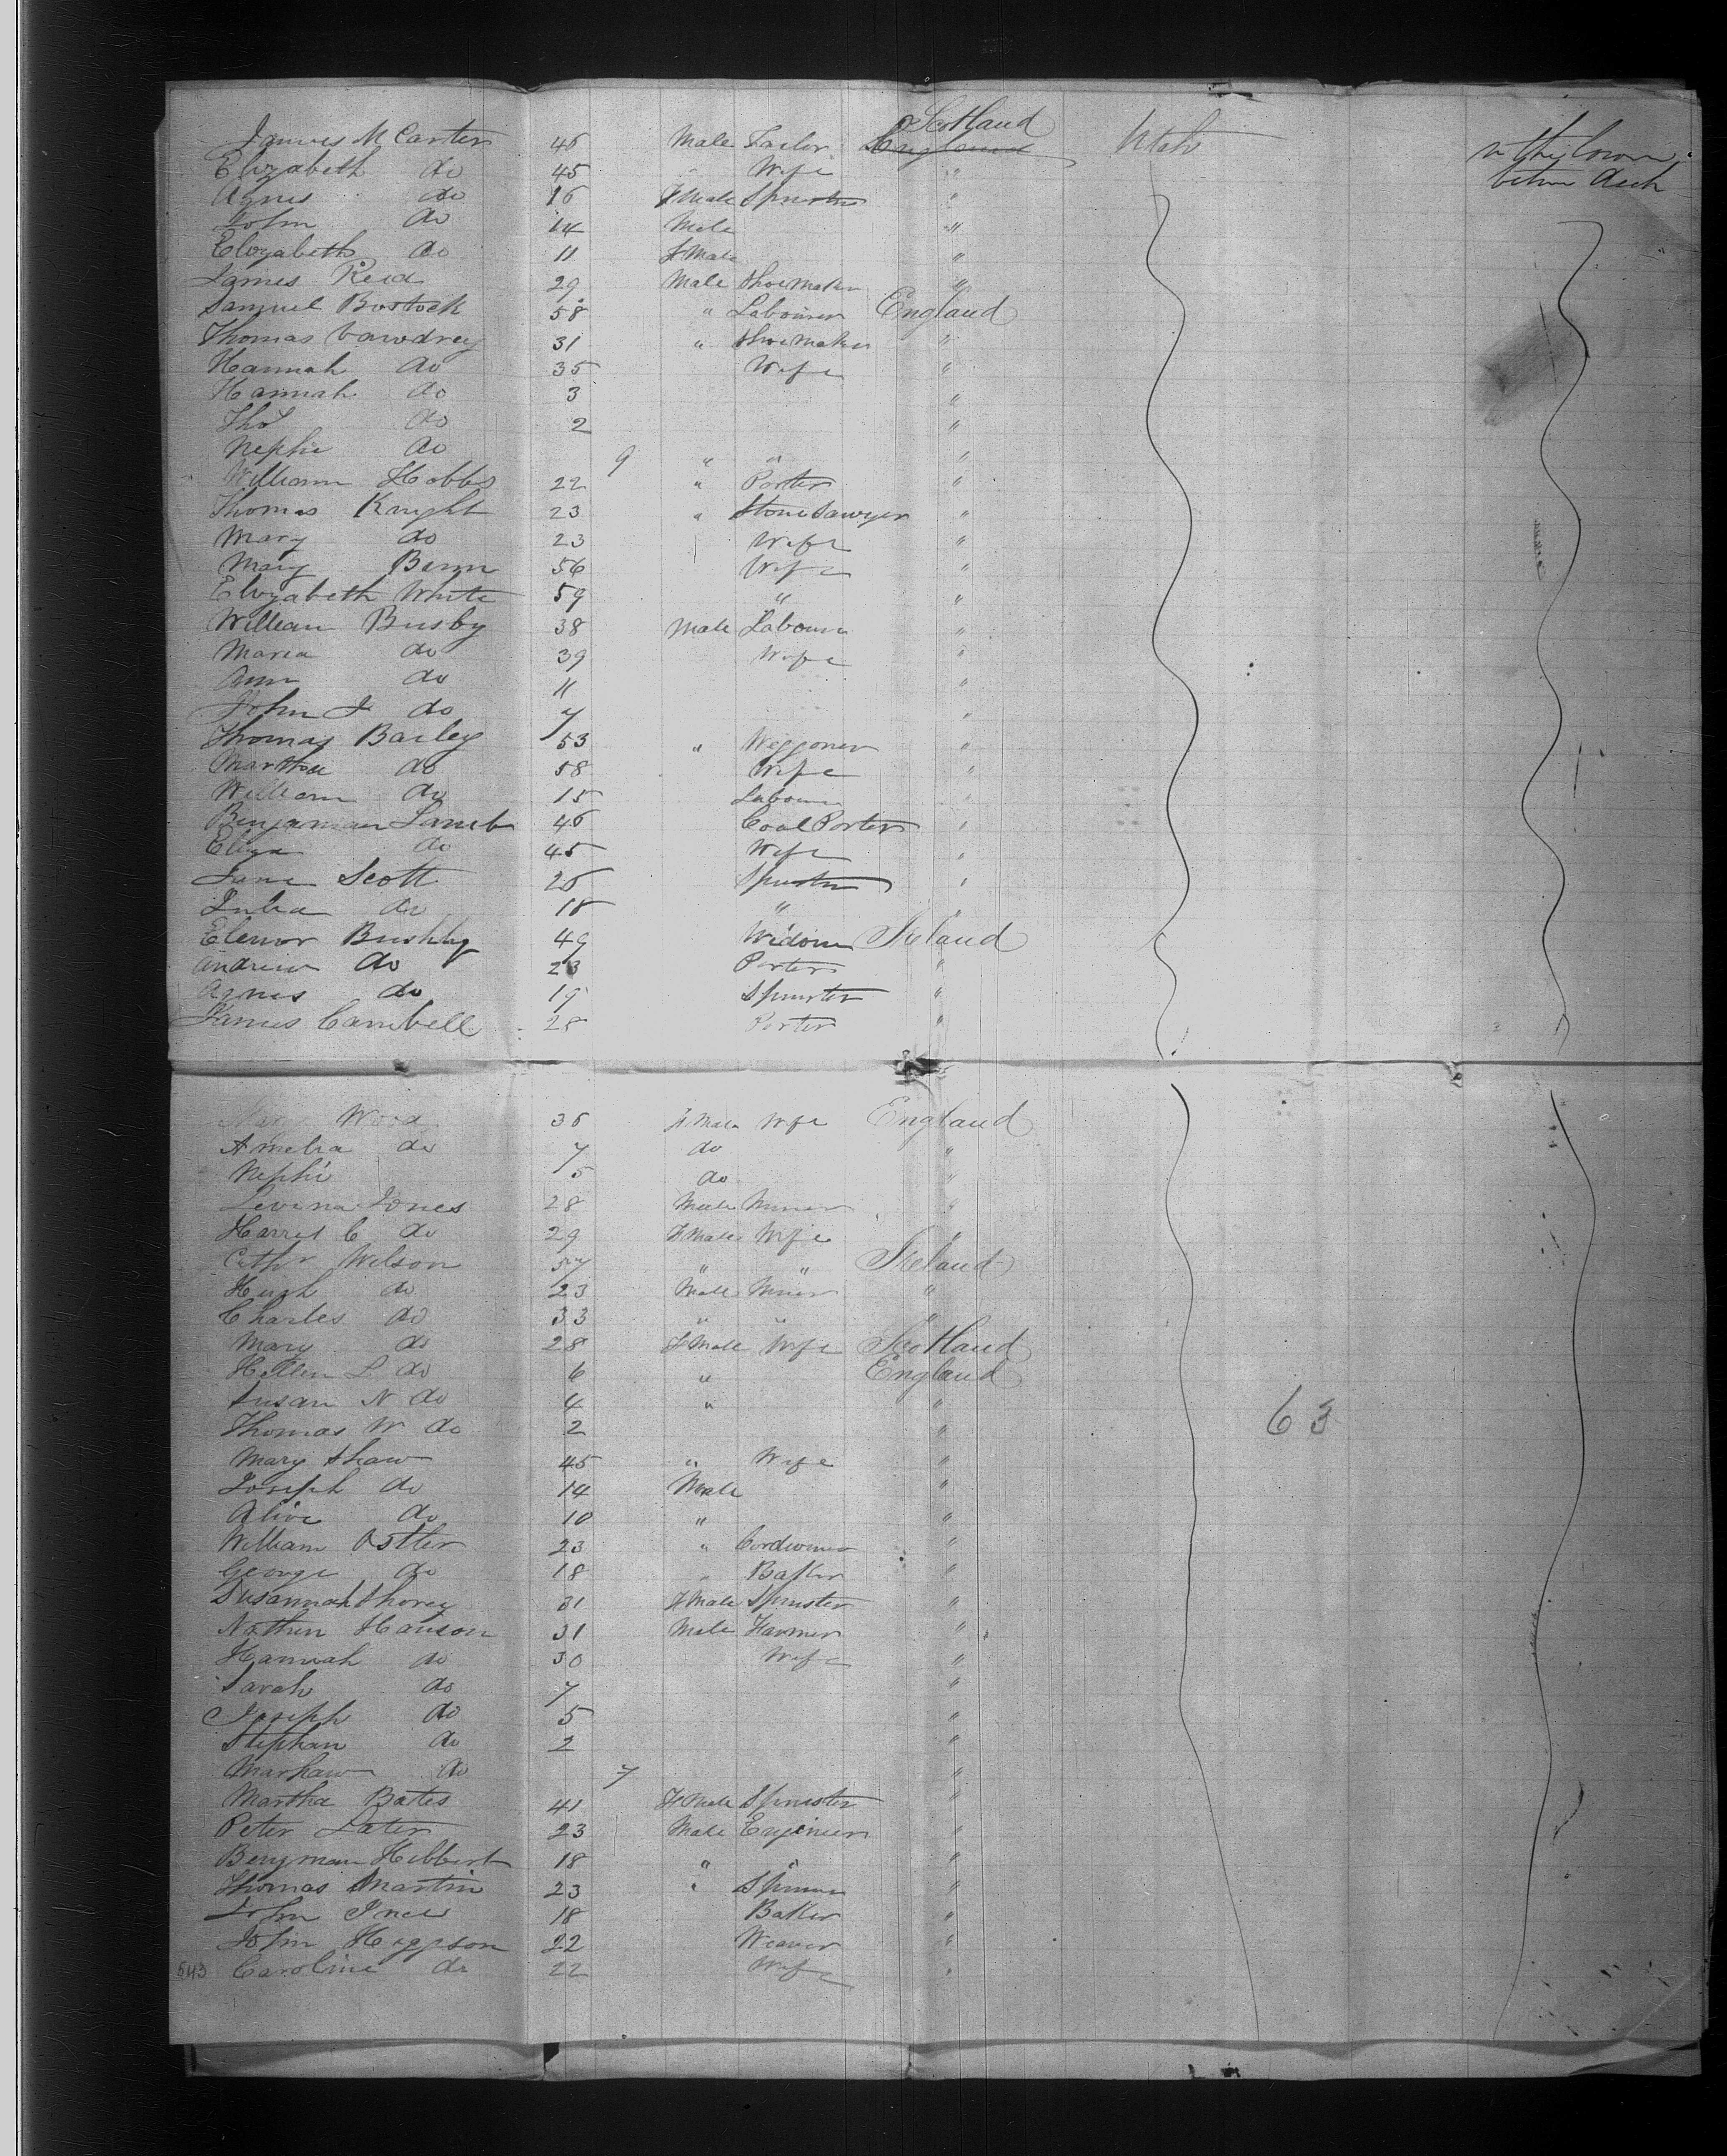 James M Carter 46 Male Tailor Scotland England Utah
Elizabeth do 45 Wife " between deck
Agnes do 16 F Male Spinster "
John do 14 Male "
Elizabeth do 11 F Male "
James Reid 29 Male Shoe Maker "
Samuel Bostock 58 " Labourer England
Thomas Cawdrey 31 " Shoe Maker "
Hannah do 35 Wife "
Hannah do 3 "
Thos do 2 "
Nephi do 9 " " "
William Hobbs 22 " Porter "
Thomas Knight 23 " Stone Sawyer "
Mary do 23 Wife "
Mary Bann 56 Wife "
Elizabeth White 59 " "
William Busby 38 Male Labourer "
Maria do 39 Wife "
Ann do 11 "
John J do 7 "
Thomas Bailey 53 " Waggoner "
Martha do 58 Wife "
William do 15 Labourer "
Benjaman Lamb 46 Coal Porter "
Eliza do 45 Wife "
Jane Scott 26 Spinster "
Julia do 18 " "
Elenor Bushby 49 Widow Ireland
Andrew do 23 Porter "
Agnes do 19 Spinster "
James Cambell 28 Porter "
Wood 36 F Male Wife England
Amelia do 7 do "
Nephi 5 do "
Levina Jones 28 Male Miner "
Harriet C do 29 F Male Wife "
Cathr Wilson 57 " " Ireland
Hugh do 23 Male Miner "
Charles do 33 " " "
Mary do 28 F Male Wife Scotland
Hellen L do 6 " England
Susan N do 4 " "
Thomas W do 2 " 63
Mary Shaw 45 " Wife "
Joseph do 14 Male "
Alice do 10 " "
William Ostler 23 " Cordwiner "
George do 18 " Baker "
Susannah Shorey 31 F Male Spinster "
Nathen Hanson 31 Male Farmer "
Hannah do 30 Wife "
Sarah do 7 "
Joseph do 5 "
Stephan do 2 "
do 7 "
Martha Bates 41 F Male Spinster "
Peter Later 23 Male Engineer "
Benjman Hibbert 18 " " "
Thomas Martin 23 " Spinner "
John 18 Baker "
John Higgson 22 Weaver "
543 Caroline do 22 Wife "